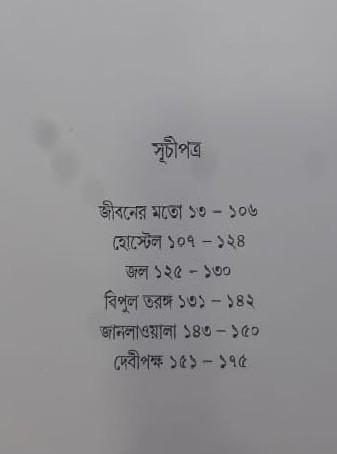 সূচীপত্র
জীবনের মতো ১৩ – ১০৬
হোস্টেল ১০৭ – ১২৪
জল ১২৫ – ১৩০
বিপুল তরঙ্গ ১৩১ – ১৪২
জানলাওয়ালা ১৪৩ – ১৫০
দেবীপক্ষ ১৫১ – ১৭৫